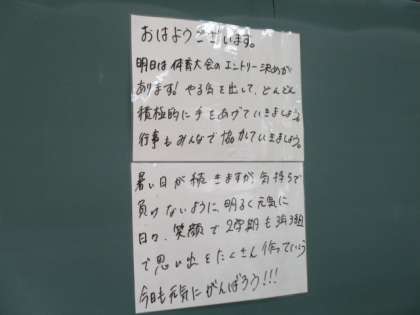 おはようございます。
明日は体育大会のエントリー決めが
あります!やる気を出して、どんどん
積極的に手をあげていきましょう。
行事もみんなで協力していきましょう。
暑い日が続きますが、気持ちで
負けないように、明るく元気に
日々、笑顔で2学期も3年3組
で思い出をたくさん作っていこう
今日も元気にがんばろう!!!